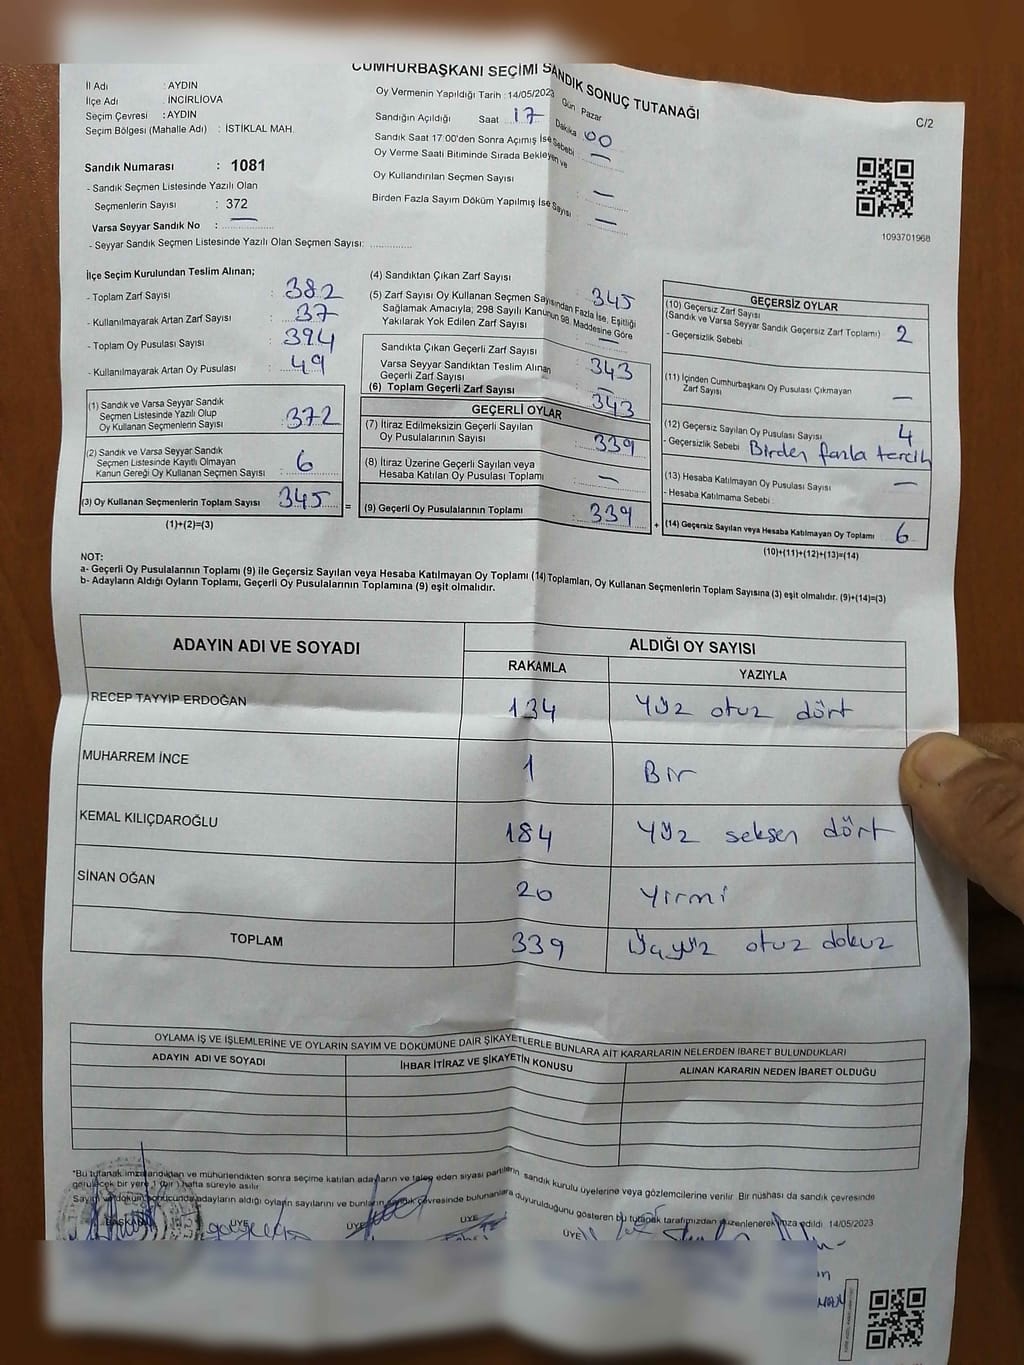 CUMHURBAŞKANI SEÇİMİ SANDIK SONUÇ TUTANAĞI
C/2
İl Adı : AYDIN
İlçe Adı : İNCİRLİOVA
Seçim Çevresi : AYDIN
Seçim Bölgesi (Mahalle Adı) : İSTİKLAL MAH.
Sandık Numarası : 1081
- Sandık Seçmen Listesinde Yazılı Olan
Seçmenlerin Sayısı : 372
Varsa Seyyar Sandık No : —
- Seyyar Sandık Seçmen Listesinde Yazılı Olan Seçmen Sayısı: ............
Oy Vermenin Yapıldığı Tarih : 14/05/2023 Gün : Pazar
Sandığın Açıldığı Saat 17 Dakika 00
Sandık Saat 17:00'den Sonra Açımış İse Sebebi —
Oy Verme Saati Bitiminde Sırada Bekleyen ve
Oy Kullandırılan Seçmen Sayısı : —
Birden Fazla Sayım Döküm Yapılmış İse Sayısı : —
1093701968
İlçe Seçim Kurulundan Teslim Alınan;
- Toplam Zarf Sayısı : 382
- Kullanılmayarak Artan Zarf Sayısı : 37
- Toplam Oy Pusulası Sayısı : 394
- Kullanılmayarak Artan Oy Pusulası : 49
(1) Sandık ve Varsa Seyyar Sandık
Seçmen Listesinde Yazılı Olup
Oy Kullanan Seçmenlerin Sayısı : 372
(2) Sandık ve Varsa Seyyar Sandık
Seçmen Listesinde Kayıtlı Olmayan
Kanun Gereği Oy Kullanan Seçmen Sayısı : 6
(3) Oy Kullanan Seçmenlerin Toplam Sayısı 345 =
(1)+(2)=(3)
(4) Sandıktan Çıkan Zarf Sayısı : 345
(5) Zarf Sayısı Oy Kullanan Seçmen Sayısından Fazla İse, Eşitliği
Sağlamak Amacıyla; 298 Sayılı Kanunun 98. Maddesine Göre
Yakılarak Yok Edilen Zarf Sayısı : —
Sandıkta Çıkan Geçerli Zarf Sayısı : 343
Varsa Seyyar Sandıktan Teslim Alınan
Geçerli Zarf Sayısı : —
(6) Toplam Geçerli Zarf Sayısı : 343
GEÇERLİ OYLAR
(7) İtiraz Edilmeksizin Geçerli Sayılan
Oy Pusulalarının Sayısı : 339
(8) İtiraz Üzerine Geçerli Sayılan veya
Hesaba Katılan Oy Pusulası Toplamı : —
(9) Geçerli Oy Pusulalarının Toplamı : 339 +
GEÇERSİZ OYLAR
(10) Geçersiz Zarf Sayısı
(Sandık ve Varsa Seyyar Sandık Geçersiz Zarf Toplamı) : 2
- Geçersizlik Sebebi :
(11) İçinden Cumhurbaşkanı Oy Pusulası Çıkmayan
Zarf Sayısı : —
(12) Geçersiz Sayılan Oy Pusulası Sayısı : 4
- Geçersizlik Sebebi : Birden fazla tercih
(13) Hesaba Katılmayan Oy Pusulası Sayısı : —
- Hesaba Katılmama Sebebi :
(14) Geçersiz Sayılan veya Hesaba Katılmayan Oy Toplamı : 6
(10)+(11)+(12)+(13)=(14)
NOT:
a- Geçerli Oy Pusulalarının Toplamı (9) ile Geçersiz Sayılan veya Hesaba Katılmayan Oy Toplamı (14) Toplamları, Oy Kullanan Seçmenlerin Toplam Sayısına (3) eşit olmalıdır. (9)+(14)=(3)
b- Adayların Aldığı Oyların Toplamı, Geçerli Oy Pusulalarının Toplamına (9) eşit olmalıdır.
ADAYIN ADI VE SOYADI ALDIĞI OY SAYISI
RAKAMLA YAZIYLA
RECEP TAYYİP ERDOĞAN 134 Yüz otuz dört
MUHARREM İNCE 1 Bir
KEMAL KILIÇDAROĞLU 184 Yüz seksen dört
SİNAN OĞAN 20 Yirmi
TOPLAM 339 Üçyüz otuz dokuz
OYLAMA İŞ VE İŞLEMLERİNE VE OYLARIN SAYIM VE DÖKÜMÜNE DAİR ŞİKAYETLERLE BUNLARA AİT KARARLARIN NELERDEN İBARET BULUNDUKLARI
ADAYIN ADI VE SOYADI İHBAR İTİRAZ VE ŞİKAYETİN KONUSU ALINAN KARARIN NEDEN İBARET OLDUĞU
"Bu tutanak imzalandıktan ve mühürlendikten sonra seçime katılan adayların ve talep eden siyasi partilerin sandık kurulu üyelerine veya gözlemcilerine verilir. Bir nüshası da sandık çevresinde
görülecek bir yere 1 (bir) hafta süreyle asılır.
Sayım ve döküm sonucunda adayların aldığı oyların sayılarını ve bunların sandık çevresinde bulunanlara duyurulduğunu gösteren bu tutanak tarafımızdan düzenlenerek imza edildi. 14/05/2023
BAŞKAN ÜYE ÜYE ÜYE ÜYE